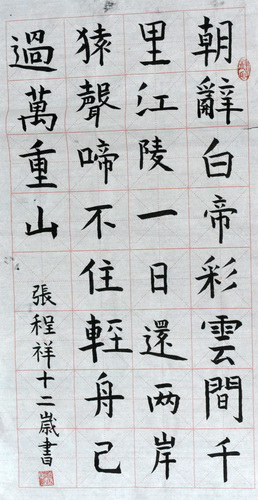 朝辭白帝彩雲間千
里江陵一日還两岸
猿聲啼不住輕舟已
過萬重山
張程祥十二歲書